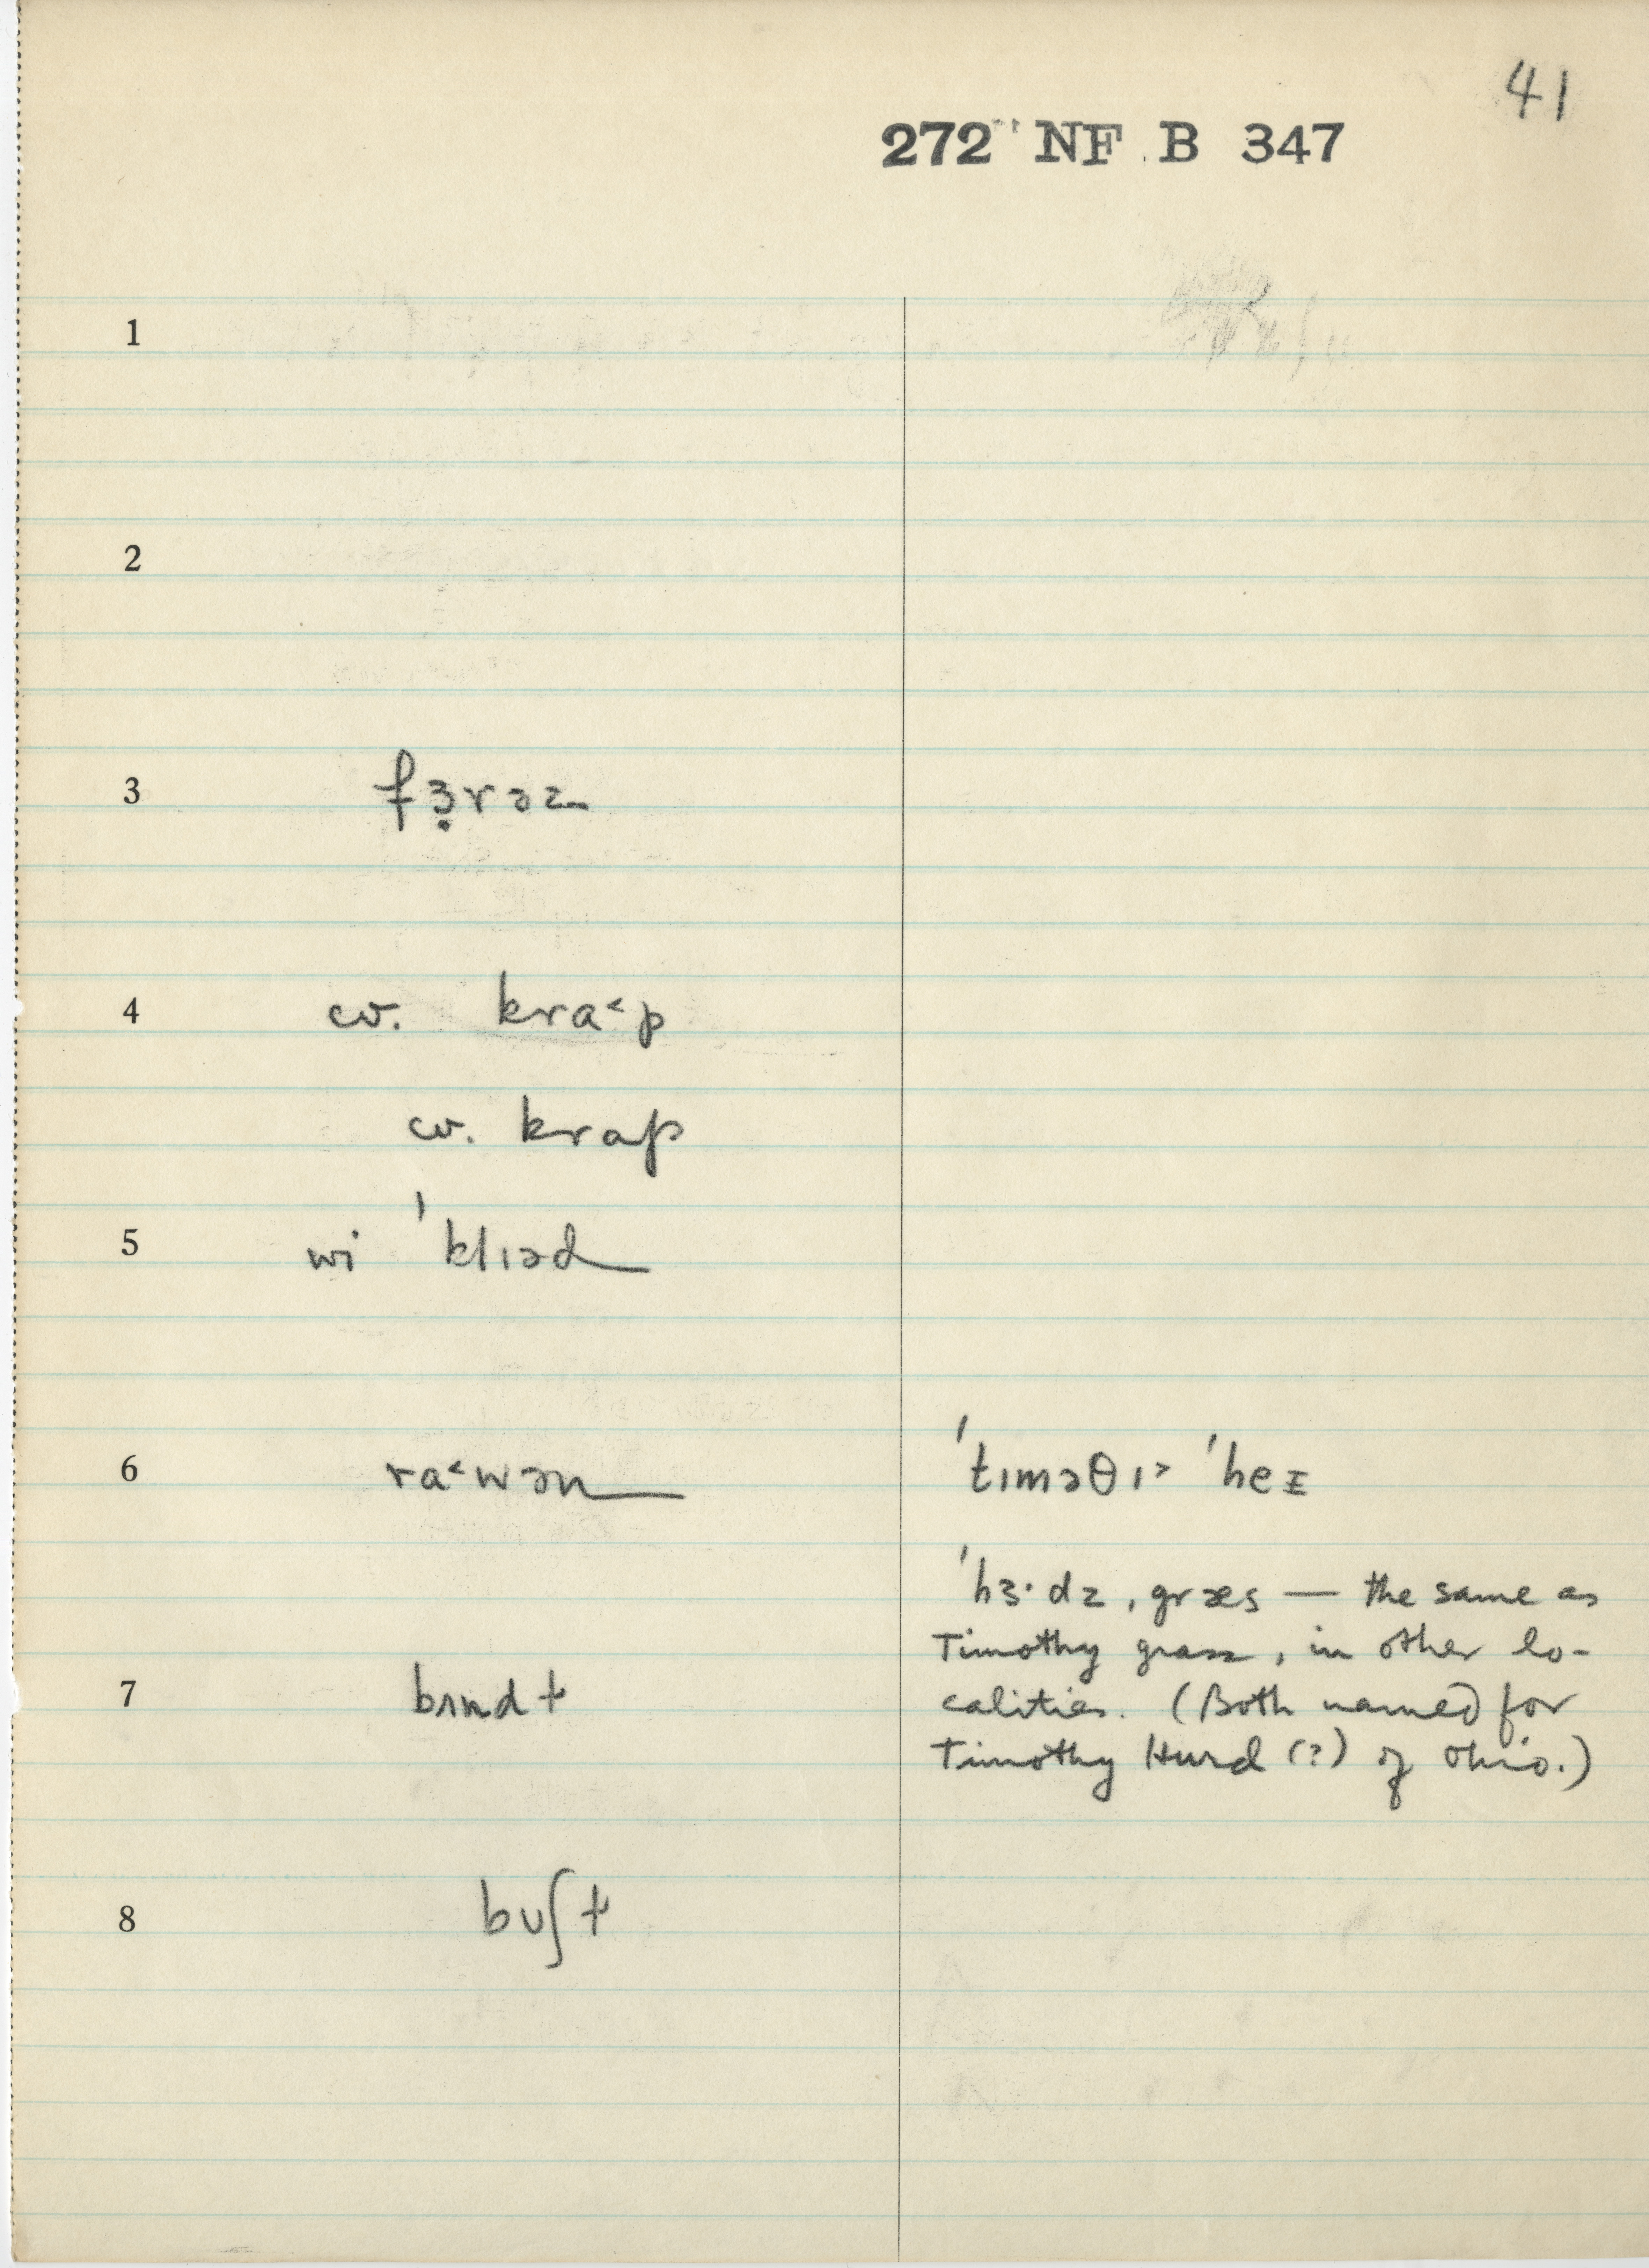 41
272 NF B 347
1
2
3 fɜ̣rəz
4 cv. kra˂p
cv. krap
5 wi ˈklɪəd
6 ra˂wən ˈtɪməθɪ˃ ˈheɪ
ˈhɜ·dz ˌgræs — the same as
Timothy grass, in other lo-
7 bʌnd ɫ calities. (Both named for
Timothy Hurd (?) of Ohio.)
8 bʊʃ ɫ